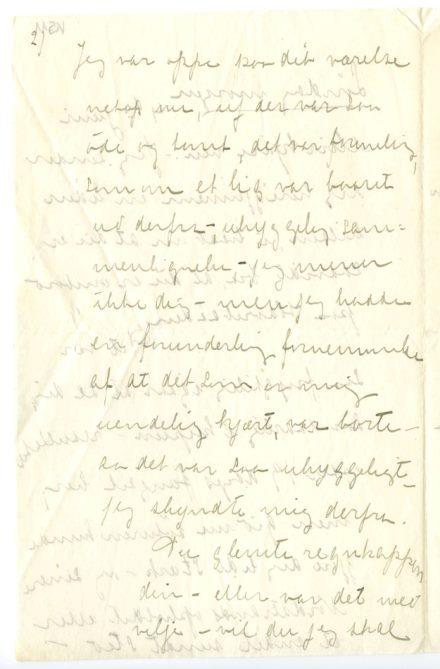 2)
Jeg var oppe paa dit værelse
netop nu, der var saa
øde og tomt, det var formelig,
som om et lig var baaret
ud derfra – uhyggelig sam-
menlignelse – jeg mener
ikke dig – men jeg havde
en forunderlig fornemmelse
af at det som er mig
uendelig kjært, var borte –
saa det var saa uhyggeligt –
jeg skyndte mig derfra.
Du glemte regnkappen
din – eller var det med
vilje – vil du jeg skal